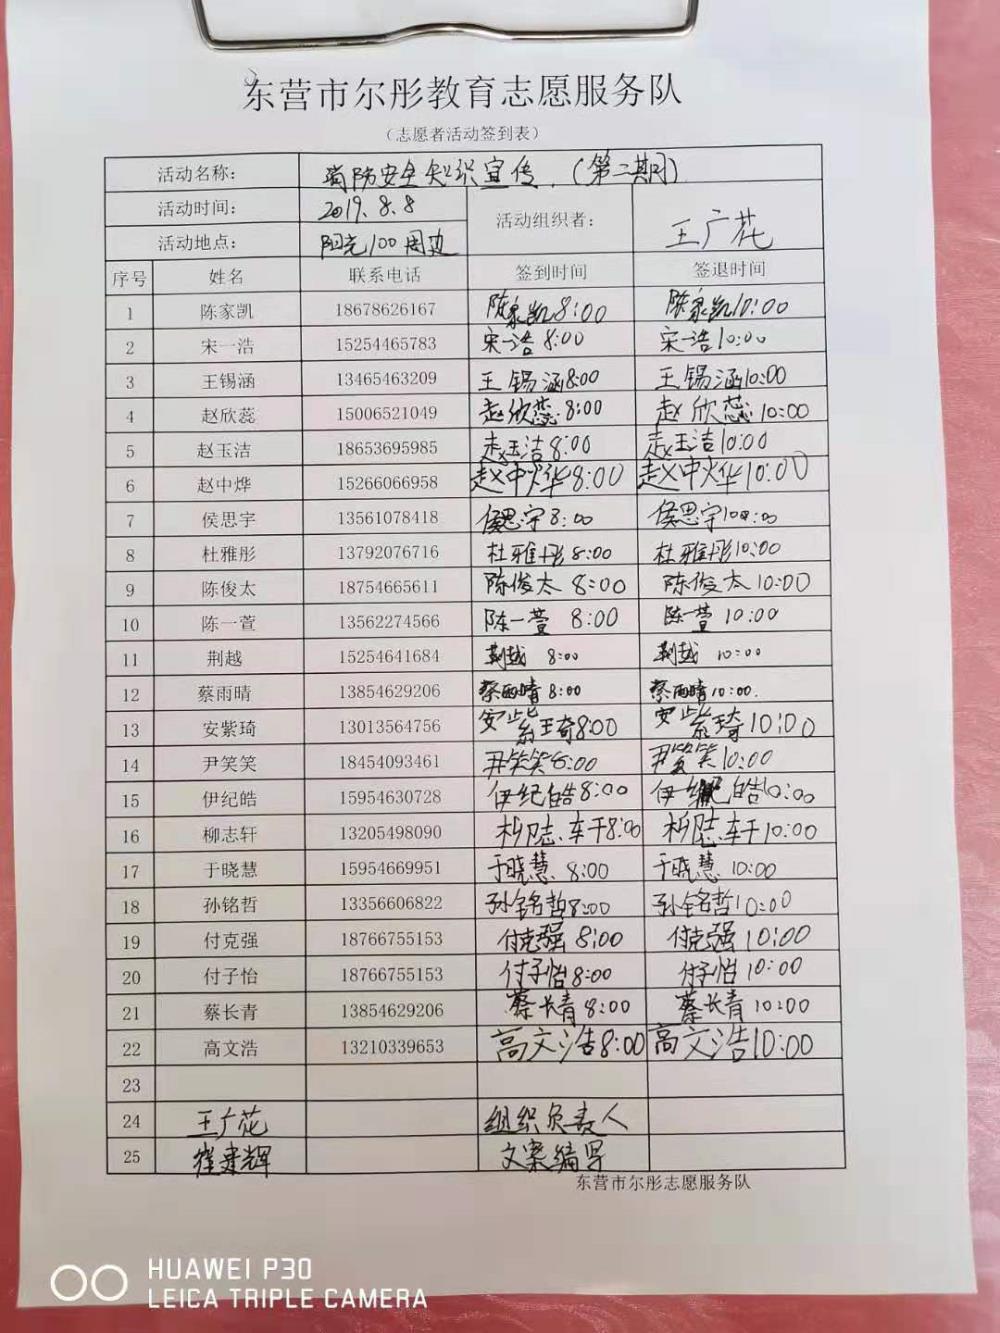 东营市尔彤教育志愿服务队
（志愿者活动签到表）
活动名称： 消防安全知识宣传.（第二期）
活动时间： 2019.8.8 活动组织者： 王广花
活动地点： 阳光100周边
序号 姓名 联系电话 签到时间 签退时间
1 陈家凯 18678626167 陈家凯8:00 陈家凯10:00
2 宋一浩 15254465783 宋一浩 8:00 宋一浩10:00
3 王锡涵 13465463209 王锡涵8:00 王锡涵10:00
4 赵欣蕊 15006521049 赵欣蕊 8:00 赵欣蕊 10:00
5 赵玉洁 18653695985 赵玉洁8:00 赵玉洁10:00
6 赵中烨 15266066958 赵中烨8:00 赵中烨10:00
7 侯思宇 13561078418 侯思宇8:00 侯思宇10:00
8 杜雅彤 13792076716 杜雅彤 8:00 杜雅彤10:00
9 陈俊太 18754665611 陈俊太 8:00 陈俊太 10:00
10 陈一萱 13562274566 陈一萱 8:00 陈一萱 10:00
11 荆越 15254641684 荆越 8:00 荆越 10:00
12 蔡雨晴 13854629206 蔡雨晴 8:00 蔡雨晴 10:00.
13 安紫琦 13013564756 安紫琦8:00 安紫琦10:00
14 尹笑笑 18454093461 尹笑笑8:00 尹笑笑10:00
15 伊纪皓 15954630728 伊纪皓8:00 伊纪皓10:00
16 柳志轩 13205498090 柳志轩8:00 柳志轩10:00
17 于晓慧 15954669951 于晓慧 8:00 于晓慧 10:00
18 孙铭哲 13356606822 孙铭哲8:00 孙铭哲10:00
19 付克强 18766755153 付克强 8:00 付克强 10:00
20 付子怡 18766755153 付子怡8:00 付子怡 10:00
21 蔡长青 13854629206 蔡长青 8:00 蔡长青 10:00
22 高文浩 13210339653 高文浩8:00 高文浩10:00
23
24 王广花 组织负责人
25 崔建辉 文案编写
东营市尔彤志愿服务队
HUAWEI P30
LEICA TRIPLE CAMERA